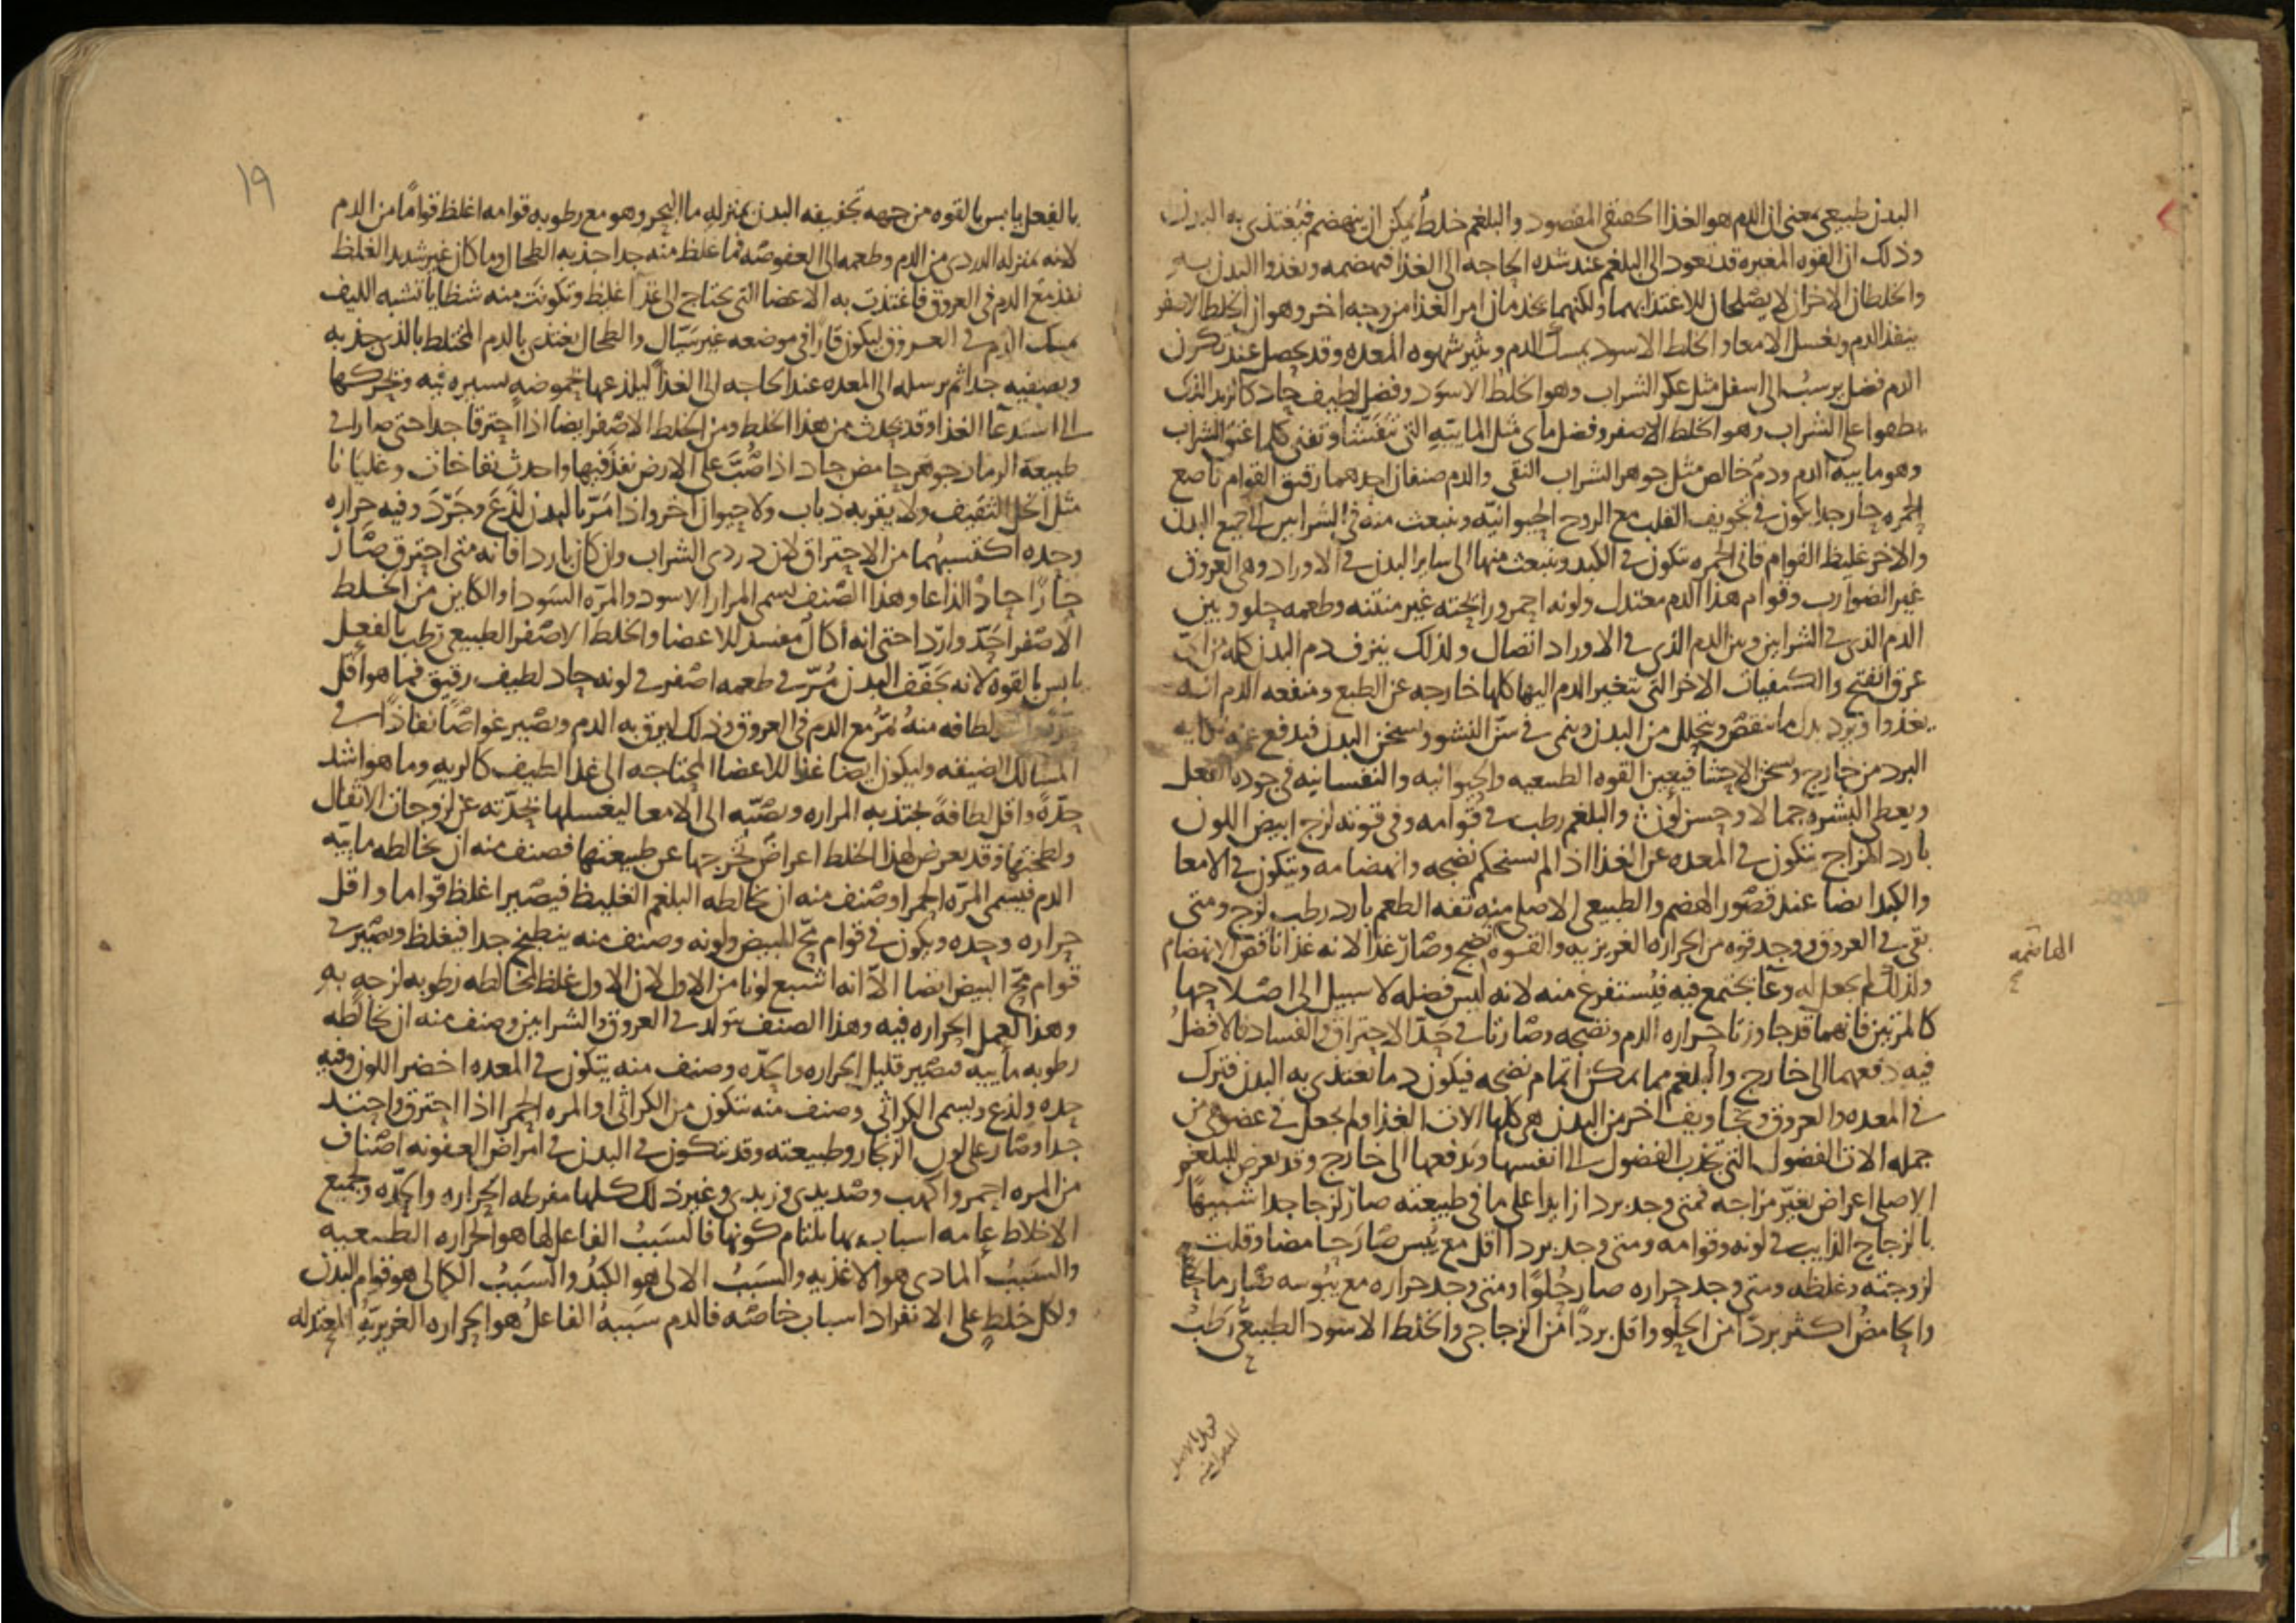 البدن طبيعي بمعنى ان الدم هو الغذا الحقيقي المقصود والبلغم خلط يمكن ان ينهضم فيغتذي به البدن
وذلك ان القوه المغيره قد تعود الى البلغم عند شده الحاجه الى الغذا فتهضمه وتغذوا البدن به
والخلطان الاخران لا يصلحان للاغتذا بهما ولكنهما يخدمان امر الغذا من وجه اخر وهو ان الخلط الاصفر
ينفذ الدم ويغسل الامعا والخلط الاسود يمسك الدم ويثير شهوه المعده وقد يحصل عند تكون
الدم فضل يرسب الى اسفل مثل عكر الشراب وهو الخلط الاسود وفضل لطيف حاد كالزبد الذي
يطفوا على الشراب وهو الخلط الاصفر وفضل ماى مثل المائيه التي وتفنى كلما عتق الشراب
وهو ماييه الدم ودم خالص مثل جوهر الشراب النقي والدم صنفان احدهما رقيق القوام ناصع
الحمره حار جدا يكون في تجويف القلب مع الروح الحيوانيه وينبعث منه في الشرايين الى جميع البدن
والاخر غليظ القوام قاني الحمره يتكون في الكبد وينبعث منها الى ساير البدن في الاوراد وهي العروق
غير الضوارب وقوام هذا الدم معتدل ولونه احمر ورايحته غير منتنه وطعمه حلو وبين
الدم الذي في الشرايين وبين الدم الذي في الاوراد اتصال ولذلك ينزف دم البدن كله من اي
عرق انفتح والكيفيات الاخر التي يتغير الدم اليها كلها خارجه عن الطبع ومنفعه الدم انه
يغذوا ويرد بدل ما ينقص ويتحلل من البدن وينمي في سن النشو ويسخن البدن فيدفع عنه نكايه
البرد من خارج ويسخن الاحشا فيعين القوه الطبيعيه والحيوانيه والنفسانيه في جوده الفعل
ويعطي البشره جمالا وحسن لون والبلغم رطب في قوامه وفي قوته لزج ابيض اللون
بارد المزاج يتكون في المعده عن الغذا اذا لم يستحكم نضجه وانهضامه ويتكون في الامعا
والكبد ايضا عند قصور الهضم والطبيعي الاصلي منه تفه الطعم بارد رطب لزج ومتى
بقي في العروق ووجد قوه من الحراره الغريزيه والقوه نضج وصار غذا لانه غذا ناقص الانهضام
الهاضمه
ولذلك لم يجعل له وعآ يجتمع فيه فيستفرغ منه لانه ليس فضله لا سبيل الى اصلاحها
كالمرتين فانهما قد جاوزتا حراره الدم ونضجه وصارتا في حد الاحتراق والفساد فالافضل
فيه دفعهما الى خارج والبلغم مما يمكن اتمام نضجه فيكون دما يغتذي به البدن فترك
في المعده والعروق وتجاويف اخر من البدن هي كلها الات الغذا ولم يجعل في عضو من
جمله الات الفضول التي تجذب الفضول الى انفسها وتدفعها الى خارج وقد يعرض للبلغم
الاصلي اعراض تغير مزاجه فمتى وجد بردا زايدا على ما في طبيعته صار لزجا جدا شبيها
بالزجاج الذايب في لونه وقوامه ومتى وجد بردا اقل مع يبس صار حامضا وقلت
لزوجته وغلظه ومتى وجد حراره صار حلوا ومتى وجد حراره مع يبوسه صار مالحا
والحامض اكثر بردا من الحلو واقل بردا من الزجاجي والخلط الاسود الطبيعي رطب
١٩
بالفعل يابس بالقوه من جهه تجفيفه البدن بمنزله ما البحر وهو مع رطوبه قوامه اغلظ قواما من الدم
لانه بمنزله الدردي من الدم وطعمه الى العفوصه فما غلظ منه جدا جذبه الطحال وما كان غير شديد الغلظ
نفذ مع الدم في العروق فاغتذت به الاعضا التي تحتاج الى غذا اغلظ وتكونت منه شظايا تشبه الليف
يمسك الدم في العروق ليكون قارا في موضعه غير سيال والطحال يغتذي بالدم المختلط بالذي جذبه
ويصفيه جدا ثم يرسله الى المعده عند الحاجه الى الغذا ليلذعها بحموضه يسيره فيه وتحركها
الى استدعآ الغذا وقد يحدث من هذا الخلط ومن الخلط الاصفر ايضا اذا احترقا جدا حتى صارا في
طبيعه الرماد جوهر حامض حاد اذا صب على الارض نفذ فيها واحدث نفاخات وغليانا
مثل الخل الثقيف ولا يقربه ذباب ولا حيوان اخر واذا مر بالبدن لذع وجرد وفيه حراره
وحده اكتسبهما من الاحتراق لان دردي الشراب وان كان باردا فانه متى احترق صار
حارا حادا لذاعا وهذا الصنف يسمى المرار الاسود والمره السودا والكاين من الخلط
الاصفر احد واردا حتى انه اكال مفسد للاعضا والخلط الاصفر الطبيعي رطب بالفعل
يابس بالقوه لانه يجفف البدن مر في طعمه اصفر في لونه حاد لطيف رقيق فما هو اقل
لطافه منه يمر مع الدم في العروق وذلك ليرق به الدم ويصير غواصا نفاذا في
المسالك الضيقه وليكون ايضا غذا للاعضا المحتاجه الى غذا لطيف كالريه وما هو اشد
حده واقل لطافه تجتذبه المراره وتصبه الى الامعا ليغسلها بحدته عن لزوجات الاثفال
ولطخها وقد يعرض لهذا الخلط اعراض تخرجها عن طبيعتها فصنف منه ان يخالطه ماييه
الدم فيسمى المره الحمرا وصنف منه ان يخالطه البلغم الغليظ فيصير اغلظ قواما واقل
حراره وحده ويكون في قوام مح البيض ولونه وصنف منه ينطبخ جدا فيغلظ ويصير في
قوام مح البيض ايضا الا انه اشبع لونا من الاول لان الاول غلظ لمخالطه رطوبه لزجه به
وهذا لعمل الحراره فيه وهذا الصنف يتولد في العروق والشرايين وصنف منه ان يخالطه
رطوبه ماييه فيصير قليل الحراره والحده وصنف منه يتكون في المعده اخضر اللون وفيه
حده ولذع ويسمى الكراثي وصنف منه يتكون من الكراثي او المره الحمرا اذا احترق واحتد
جدا وصار على لون الزنجار وطبيعته وقد يتكون في البدن في امراض العفونه اصناف
من المره احمر واكهب وصديدي وزبدي وغير ذلك كلها مفرطه الحراره والحده ولجميع
الاخلاط عامه اسباب بها يلتام كونها فالسبب الفاعل لها هو الحراره الطبيعيه
والسبب المادي هو الاغذيه والسبب الالي هو الكبد والسبب الكمالي هو قوام البدن
ولكل خلط على الانفراد اسباب خاصه فالدم سببه الفاعل هو الحراره الغريزيه المعتدله